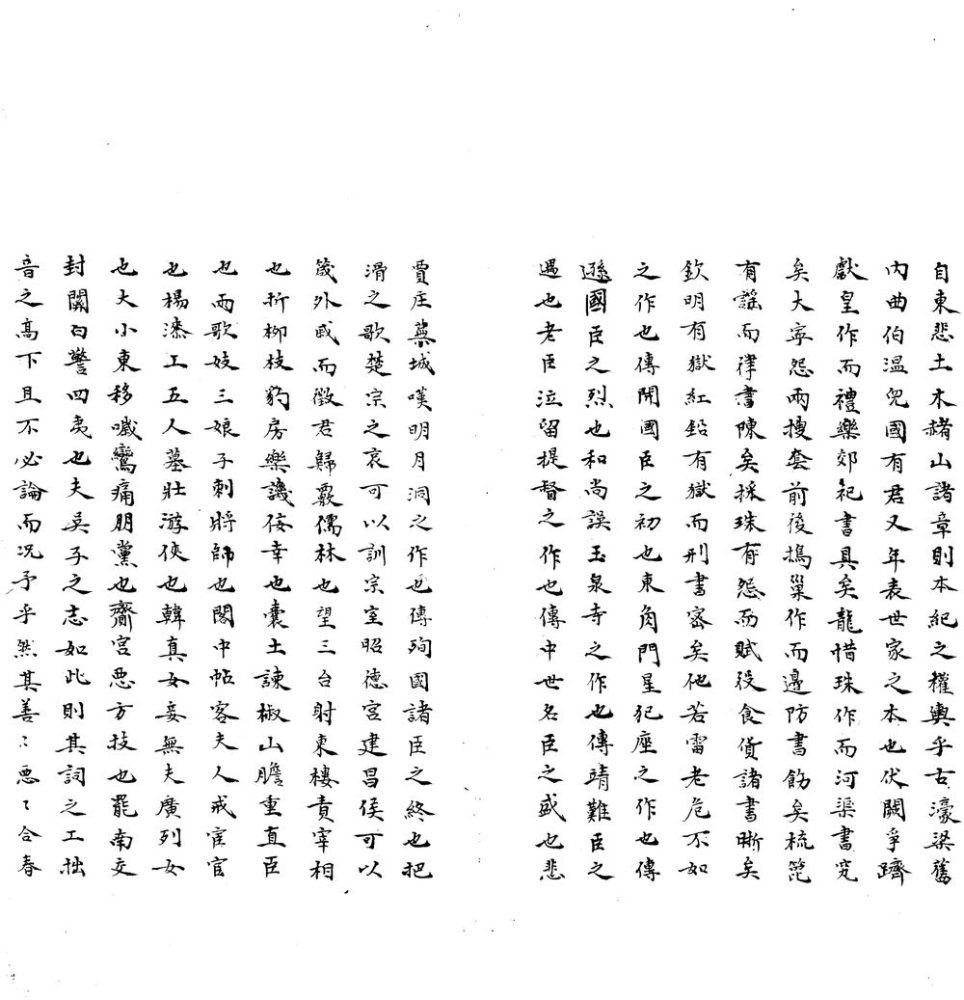 自東悲土木赭山諸章則本紀之權輿乎古濠梁舊
內曲伯溫兒國有君又年表世家之本也伏闕爭躋
獻皇作而禮樂郊祀書具矣龍惜珠作而河渠書究
矣大寧怨兩搜套前後搗巢作而邊防書飭矣梳篦
有謡而律書陳矣採珠有怨而賦役食貨諸書晰矣
欽明有獄紅鉛有獄而刑書密矣他若雷老危不如
之作也傳開國臣之初也東角門星犯座之作也傳
遜國臣之烈也和尚誤玉泉寺之作也傳靖難臣之
遇也老臣泣留提督之作也傳中世名臣之盛也悲
賈庄蕪城嘆明月洞之作也傳殉國諸臣之終也把
滑之歌楚宗之哀可以訓宗室昭德宮建昌侯可以
箴外戚而徵君歸覈儒林也望三台射東樓責宰相
也折柳枝豹房樂譏佞幸也囊土諫椒山膽重直臣
也而歌妓三娘子刺將帥也閣中帖客夫人戒宦官
也楊漆工五人墓壯游俠也韓真女妾無夫廣列女
也大小東移噦鸞痛朋黨也齋宮惡方技也罷南交
封關白警四夷也夫吳子之志如此則其詞之工拙
音之高下且不必論而况予乎然其善〻惡〻合春